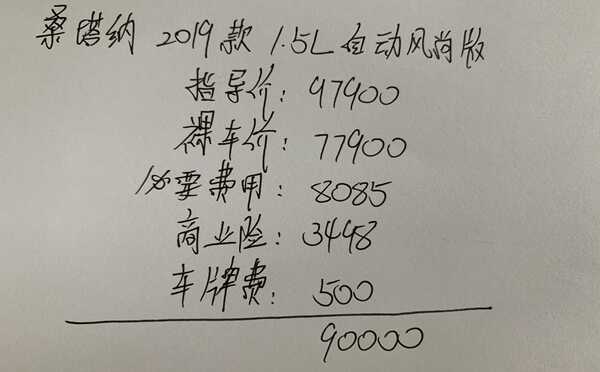 桑塔纳 2019款 1.5L自动风尚版
指导价: 97900
裸车价: 77900
必要费用: 8085
商业险: 3498
车牌费: 500
90000